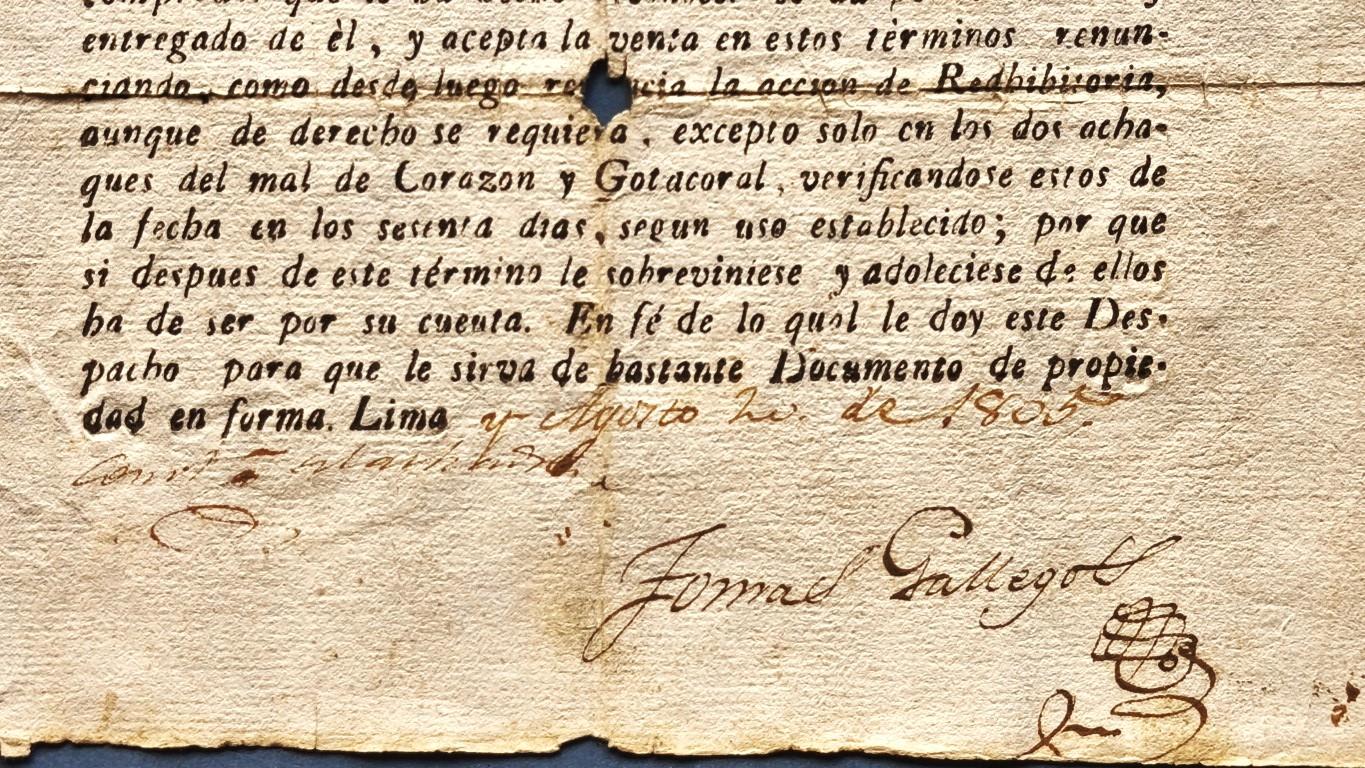 entregado de èl, y acepta la venta en estos tèrminos renun-
ciando, como desde luego renuncia la accion de Redhibitoria,
aunque de derecho se requiera, excepto solo en los dos acha-
ques del mal de Corazon y Gotacoral, verificandose estos de
la fecha en los sesenta dias, segun uso establecido; por que
si despues de este término le sobreviniese y adoleciese de ellos
ha de ser por su cuenta. En fé de lo qual le doy este Des-
pacho para que le sirva de bastante Documento de propie-
dad en forma. Lima y Agosto de 1805.
Tomas Gallegos